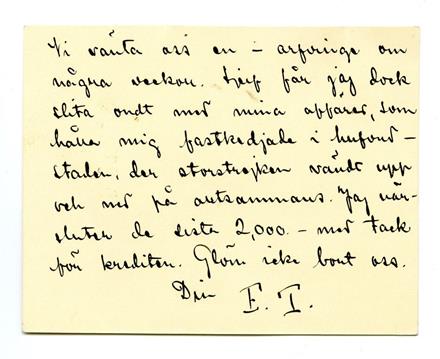 Vi vänta oss en - arfvinge om
några veckor. Sjelf får jag dock
slita ondt med mina affärer, som
hålla mig fastkedjade i hufvud-
staden, der storstrejken vändt upp
och ned på altsammans. Jag när-
sluter de sista 2,000.- med tack
för krediten. Glöm icke bort oss.
Din E. T.